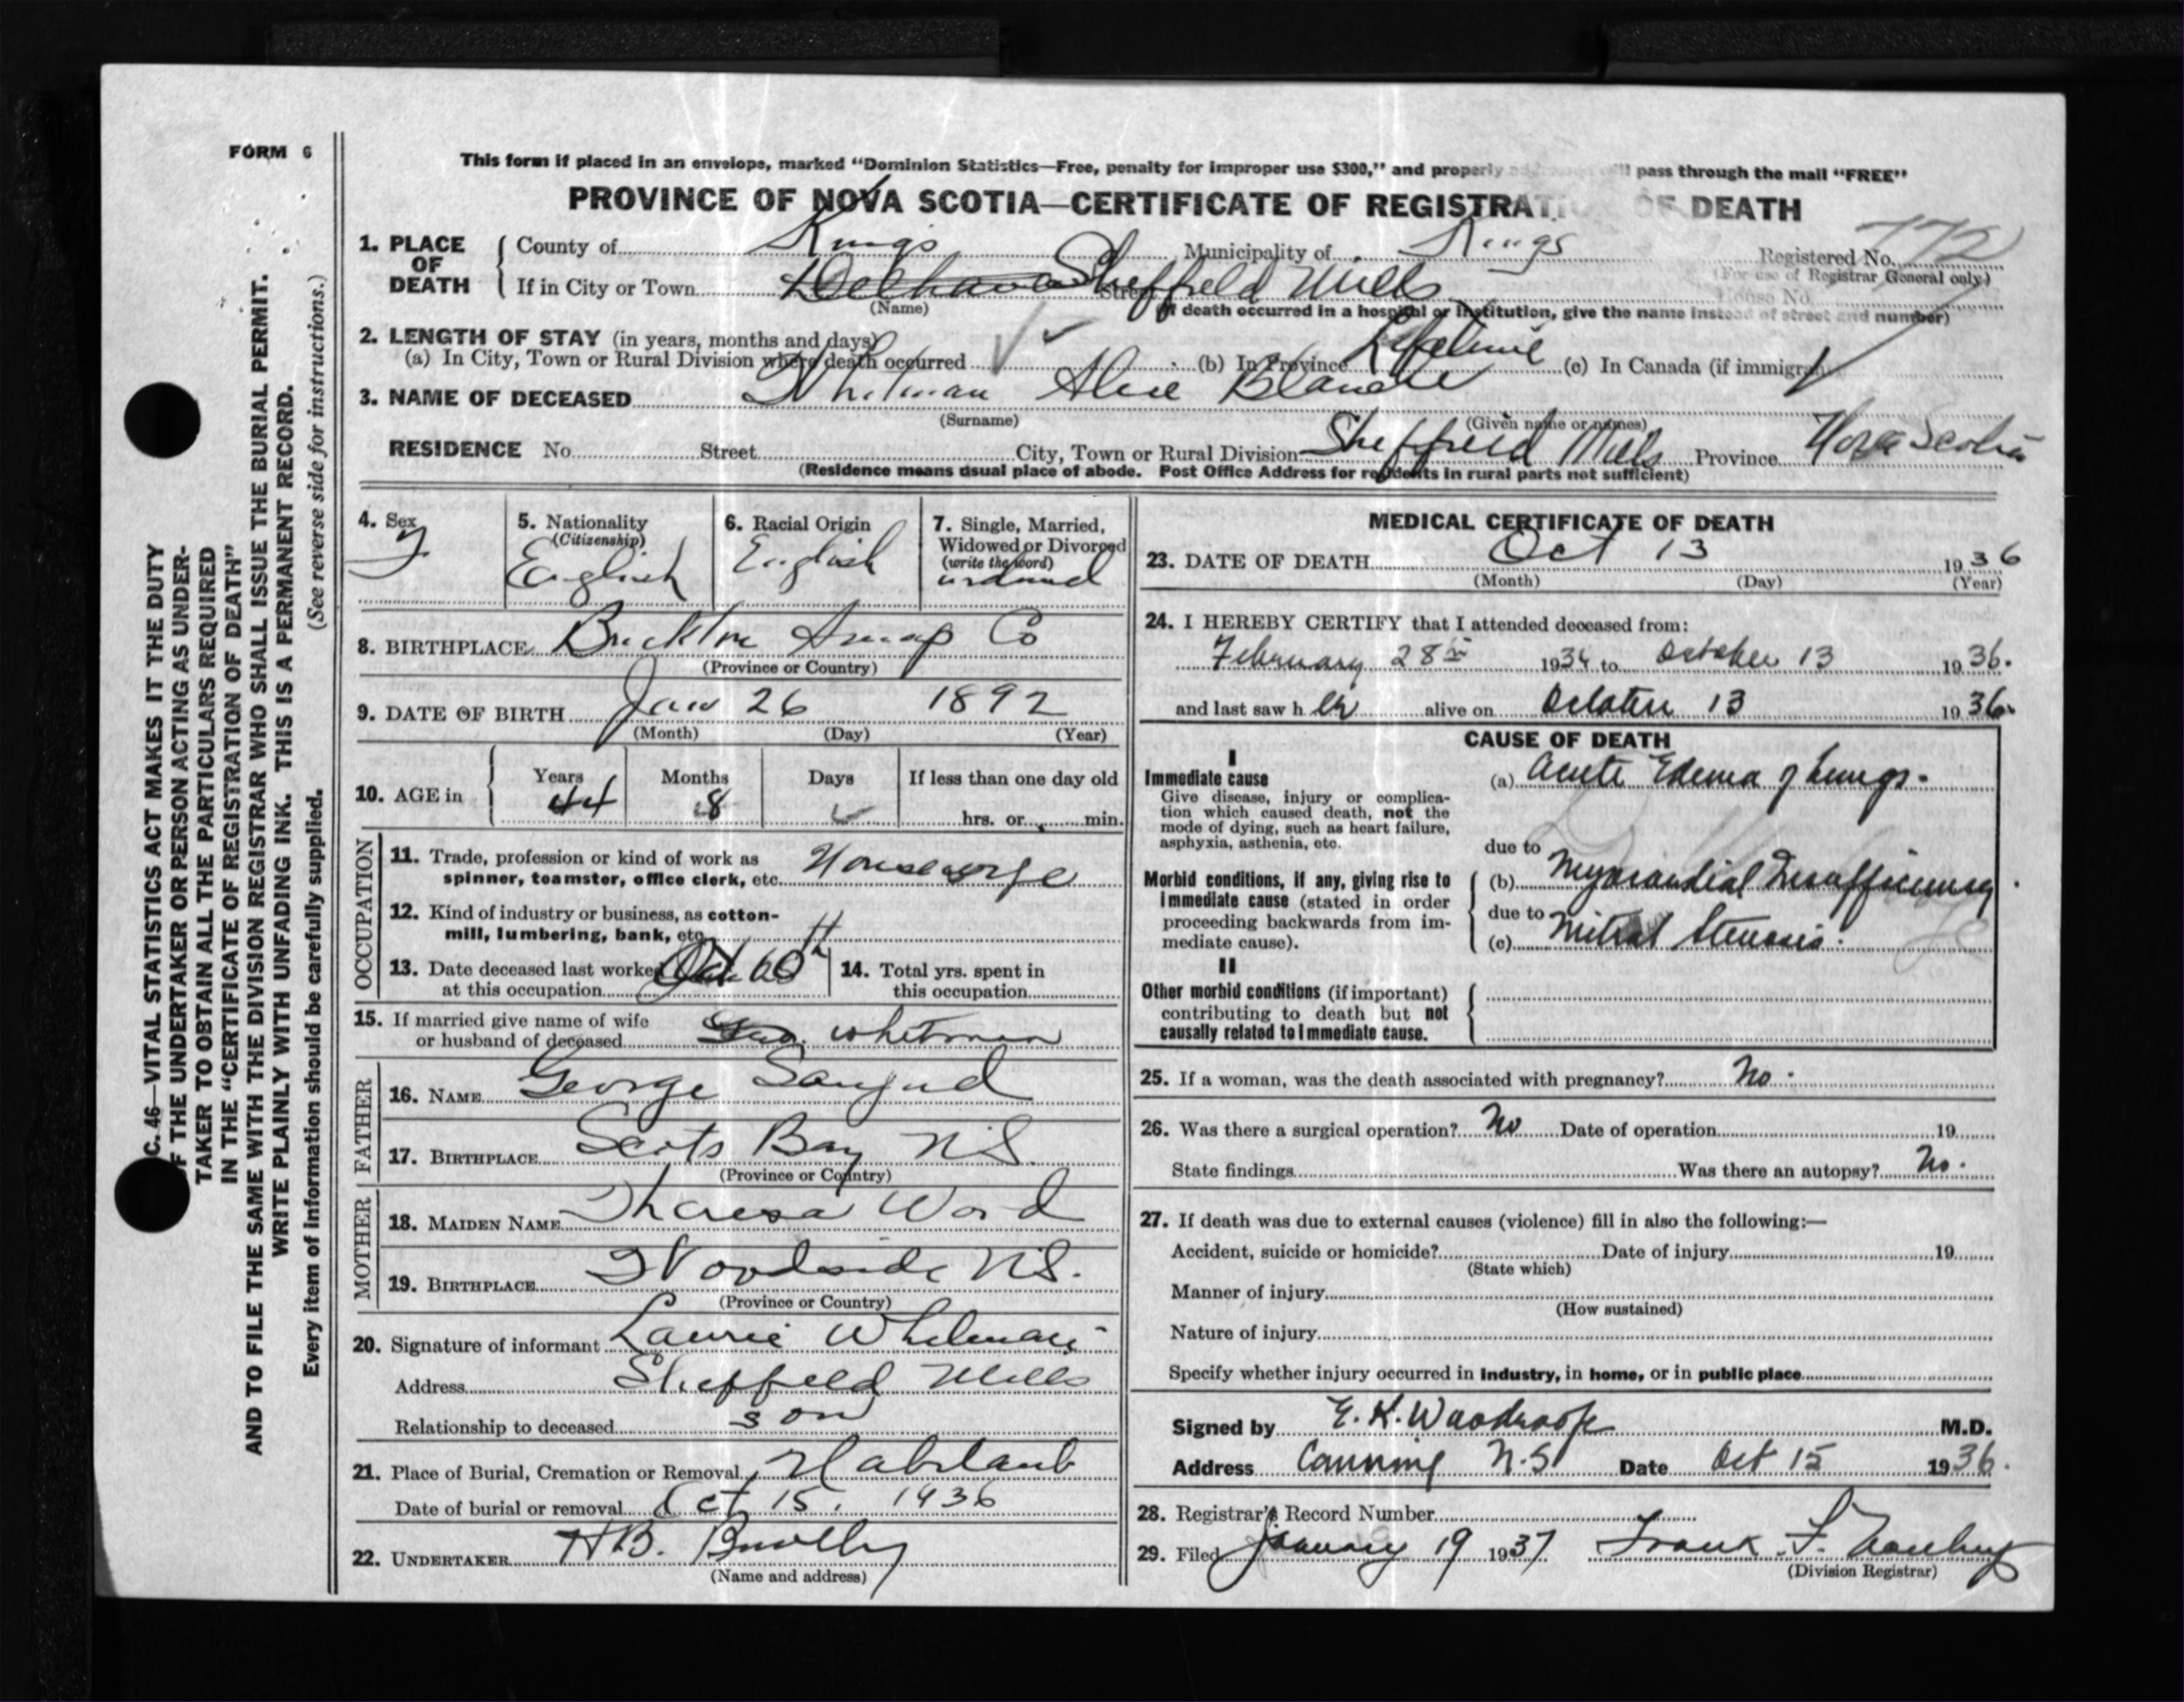 FORM 6
This form if placed in an envelope, marked “Dominion Statistics—Free, penalty for improper use $300,” and properly pass through the mail “FREE”
PROVINCE OF NOVA SCOTIA—CERTIFICATE OF REGISTRATION OF DEATH
1. PLACE OF DEATH
County of Kings Municipality of Kings Registered No. 772
(For use of Registrar General only)
If in City or Town Sheffield Mills Street House No.
(Name) (If death occurred in a hospital or institution, give the name instead of street and number)
2. LENGTH OF STAY (in years, months and days)
(a) In City, Town or Rural Division where death occurred (b) In Province Lifetime (c) In Canada (if immigrant)
3. NAME OF DECEASED Whitman Alice Blanche
(Surname) (Given name or names)
RESIDENCE No. Street City, Town or Rural Division Sheffield Mills Province Nova Scotia
(Residence means usual place of abode. Post Office Address for residents in rural parts not sufficient)
4. Sex F
5. Nationality (Citizenship) English
6. Racial Origin English
7. Single, Married, Widowed or Divorced (write the word)
8. BIRTHPLACE Annap Co
(Province or Country)
9. DATE OF BIRTH Jan 26 1892
(Month) (Day) (Year)
10. AGE in Years 44 Months 8 Days If less than one day old hrs. or min.
OCCUPATION
11. Trade, profession or kind of work as spinner, teamster, office clerk, etc. Housewife
12. Kind of industry or business, as cotton-mill, lumbering, bank, etc.
13. Date deceased last worked at this occupation Oct
14. Total yrs. spent in this occupation
15. If married give name of wife or husband of deceased Geo. Whitman
FATHER
16. NAME George Sanford
17. BIRTHPLACE Scots Bay N.S.
(Province or Country)
MOTHER
18. MAIDEN NAME Theresa Ward
19. BIRTHPLACE Woodside N.S.
(Province or Country)
20. Signature of informant Laurie Whitman
Address Sheffield Mills
Relationship to deceased son
21. Place of Burial, Cremation or Removal
Date of burial or removal Oct 15, 1936
22. UNDERTAKER H B.
(Name and address)
MEDICAL CERTIFICATE OF DEATH
23. DATE OF DEATH Oct 13 1936
(Month) (Day) (Year)
24. I HEREBY CERTIFY that I attended deceased from:
February 28th 1936 to October 13 1936.
and last saw h er alive on October 13 1936.
CAUSE OF DEATH
I
Immediate cause
Give disease, injury or complication which caused death, not the mode of dying, such as heart failure, asphyxia, asthenia, etc.
(a) Acute Edema of Lungs.
due to
Morbid conditions, if any, giving rise to immediate cause (stated in order proceeding backwards from immediate cause).
(b) Myocardial Insufficiency.
due to
(c) Mitral Stenosis.
II
Other morbid conditions (if important) contributing to death but not causally related to immediate cause.
25. If a woman, was the death associated with pregnancy? No.
26. Was there a surgical operation? No Date of operation 19
State findings Was there an autopsy? No.
27. If death was due to external causes (violence) fill in also the following:—
Accident, suicide or homicide? Date of injury 19
(State which)
Manner of injury
(How sustained)
Nature of injury
Specify whether injury occurred in industry, in home, or in public place
Signed by E. K. Woodroofe M.D.
Address Canning N.S. Date Oct 15 1936.
28. Registrar's Record Number
29. Filed January 19 1937 Frank F.
(Division Registrar)
C. 46—VITAL STATISTICS ACT MAKES IT THE DUTY
OF THE UNDERTAKER OR PERSON ACTING AS UNDER-
TAKER TO OBTAIN ALL THE PARTICULARS REQUIRED
IN THE “CERTIFICATE OF REGISTRATION OF DEATH”
AND TO FILE THE SAME WITH THE DIVISION REGISTRAR WHO SHALL ISSUE THE BURIAL PERMIT.
WRITE PLAINLY WITH UNFADING INK. THIS IS A PERMANENT RECORD.
Every item of information should be carefully supplied. (See reverse side for instructions.)